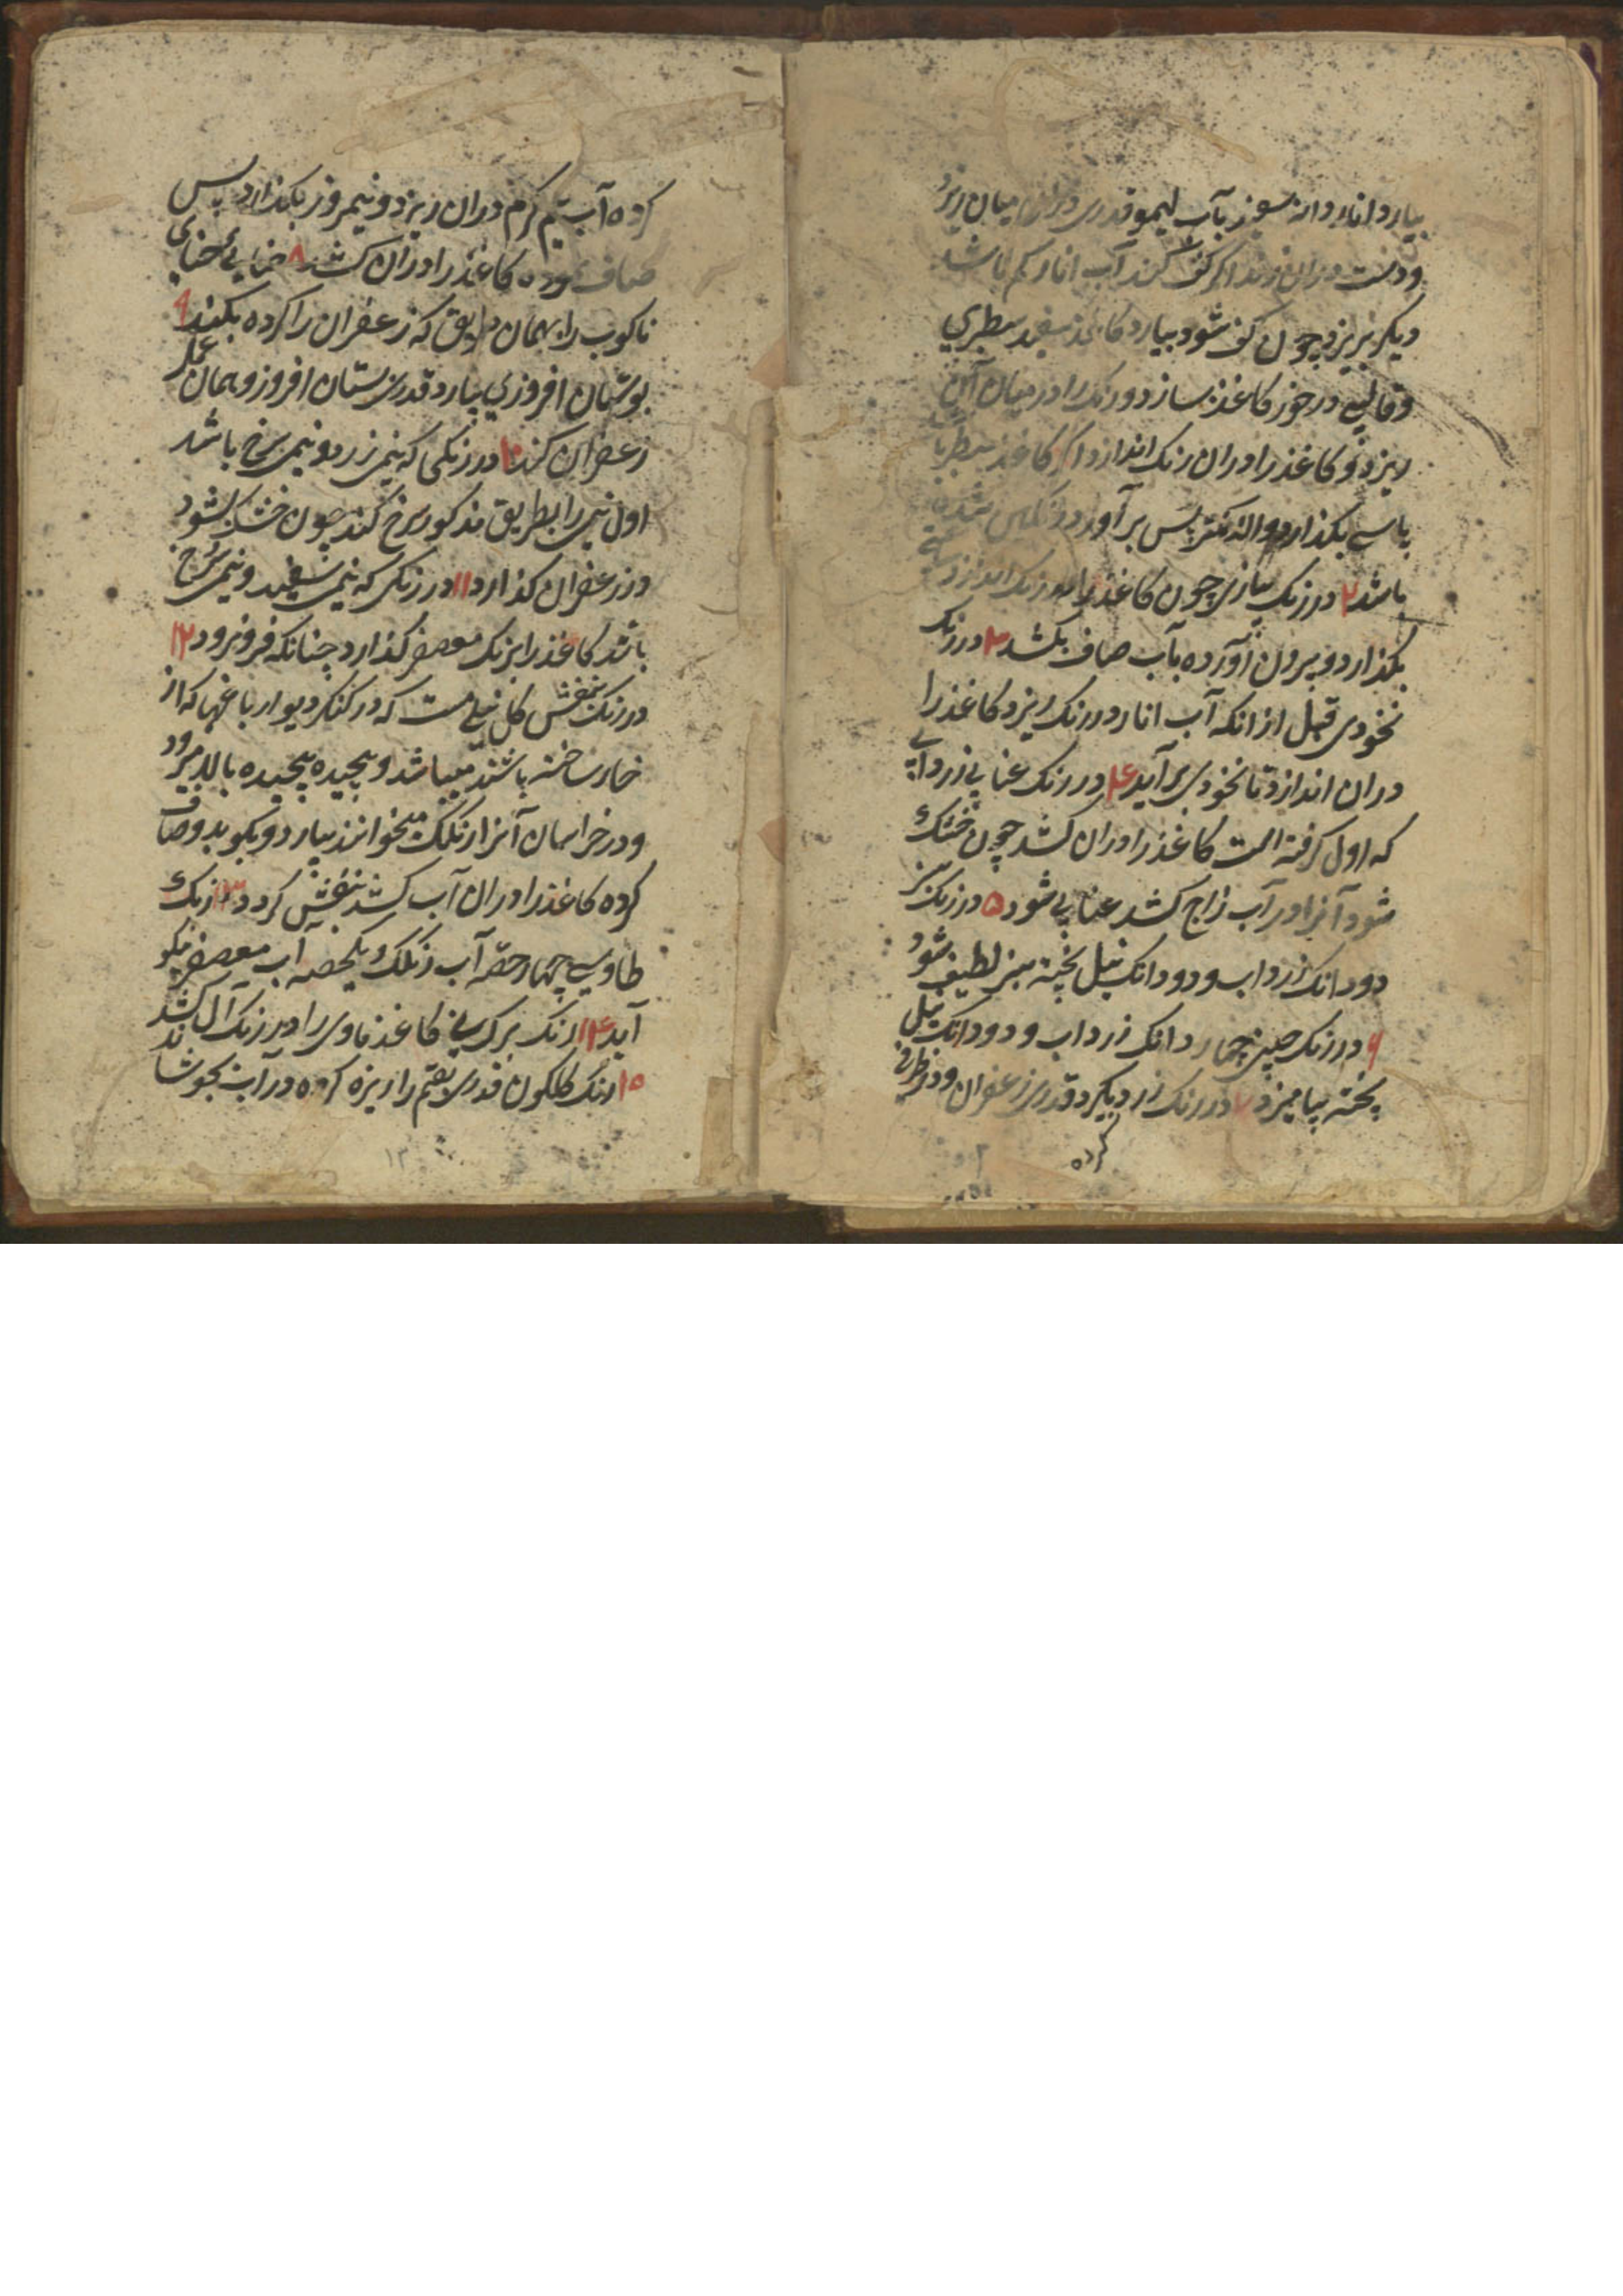 بیارد انار دانه سوز بآب لیمو قدری در میان ریزد
ودست دران زند اگر کف کند آب انار کم باشد
دیگر بریزد چون کف شود بیارد کاغذ سفید سطبری
وقالبی در خور کاغذ بسازد ورنک را در میان آن
ریزد و کاغذ را دران رنک اندازد اگر کاغذ سطبر
پاسی بکذارد والا کمتر پس برآورد رنکین شده
باشد ۲ در رنک پیازی چون کاغذ را در رنک اندازد
بکذارد وبیرون آورده بآب صاف بکشد ۳ در رنک
نخودی قبل ازانکه آب انار در رنک ریزد کاغذ را
دران اندازد تا نخودی برآید ۴ در رنک عنابی زردابی
که اول کرفته است کاغذ را دران کشد چون خشک
شود آنرا در آب زاج کشد عنابی شود ۵ در رنک سبز
دودانک زرداب ودودانک نیل پخته سبز لطیف شود
۶ در رنک چینی چهار دانک زرداب و دودانک نیل
پخته بیامیزد ۷ در رنک زرد بیکرد قدری زعفران ودر ظرفی
کرده
کرده آب نیم کرم دران ریزد ونیم روز بکذارد پس
صاف نموده کاغذ را دران کشد ۸ حنایی حنای
ناکوب را بهمان طریق که زعفران را کرده بکند ۹
بوستان افروزی بیارد قدری بستان افروز وهمان عمل
زعفران کند ۱۰ در رنکی که نیمی زرد ونیمی سرخ باشد
اول نیمی را بطریق مذکور سرخ کند چون خشک شود
در زعفران کذارد ۱۱ در رنکی که نیمی سفید ونیمی سرخ
باشد کاغذ را برنک معصفر کذارد چنانکه فرو نرود ۱۲
در رنک بنفش کل نیلی هست که در کنکر دیوار باغها که از
خار ساخته باشند میباشد وپیچیده پیچیده بالا میرود
ودر خراسان آنرا زنکلک میخوانند بیارد وبکوبد وصاف
کرده کاغذ را دران آب کشد بنفش کردد ۱۳ رنک
طاوسی چهار حصّه آب زنکلک ویکحصه آب معصفر نیکو
آید ۱۴ رنک برک بی کاغذ ماوی را در رنک آل کشد
۱۵ رنک کلکون قدری بقم را ریزه کرده در آب بجوشاند